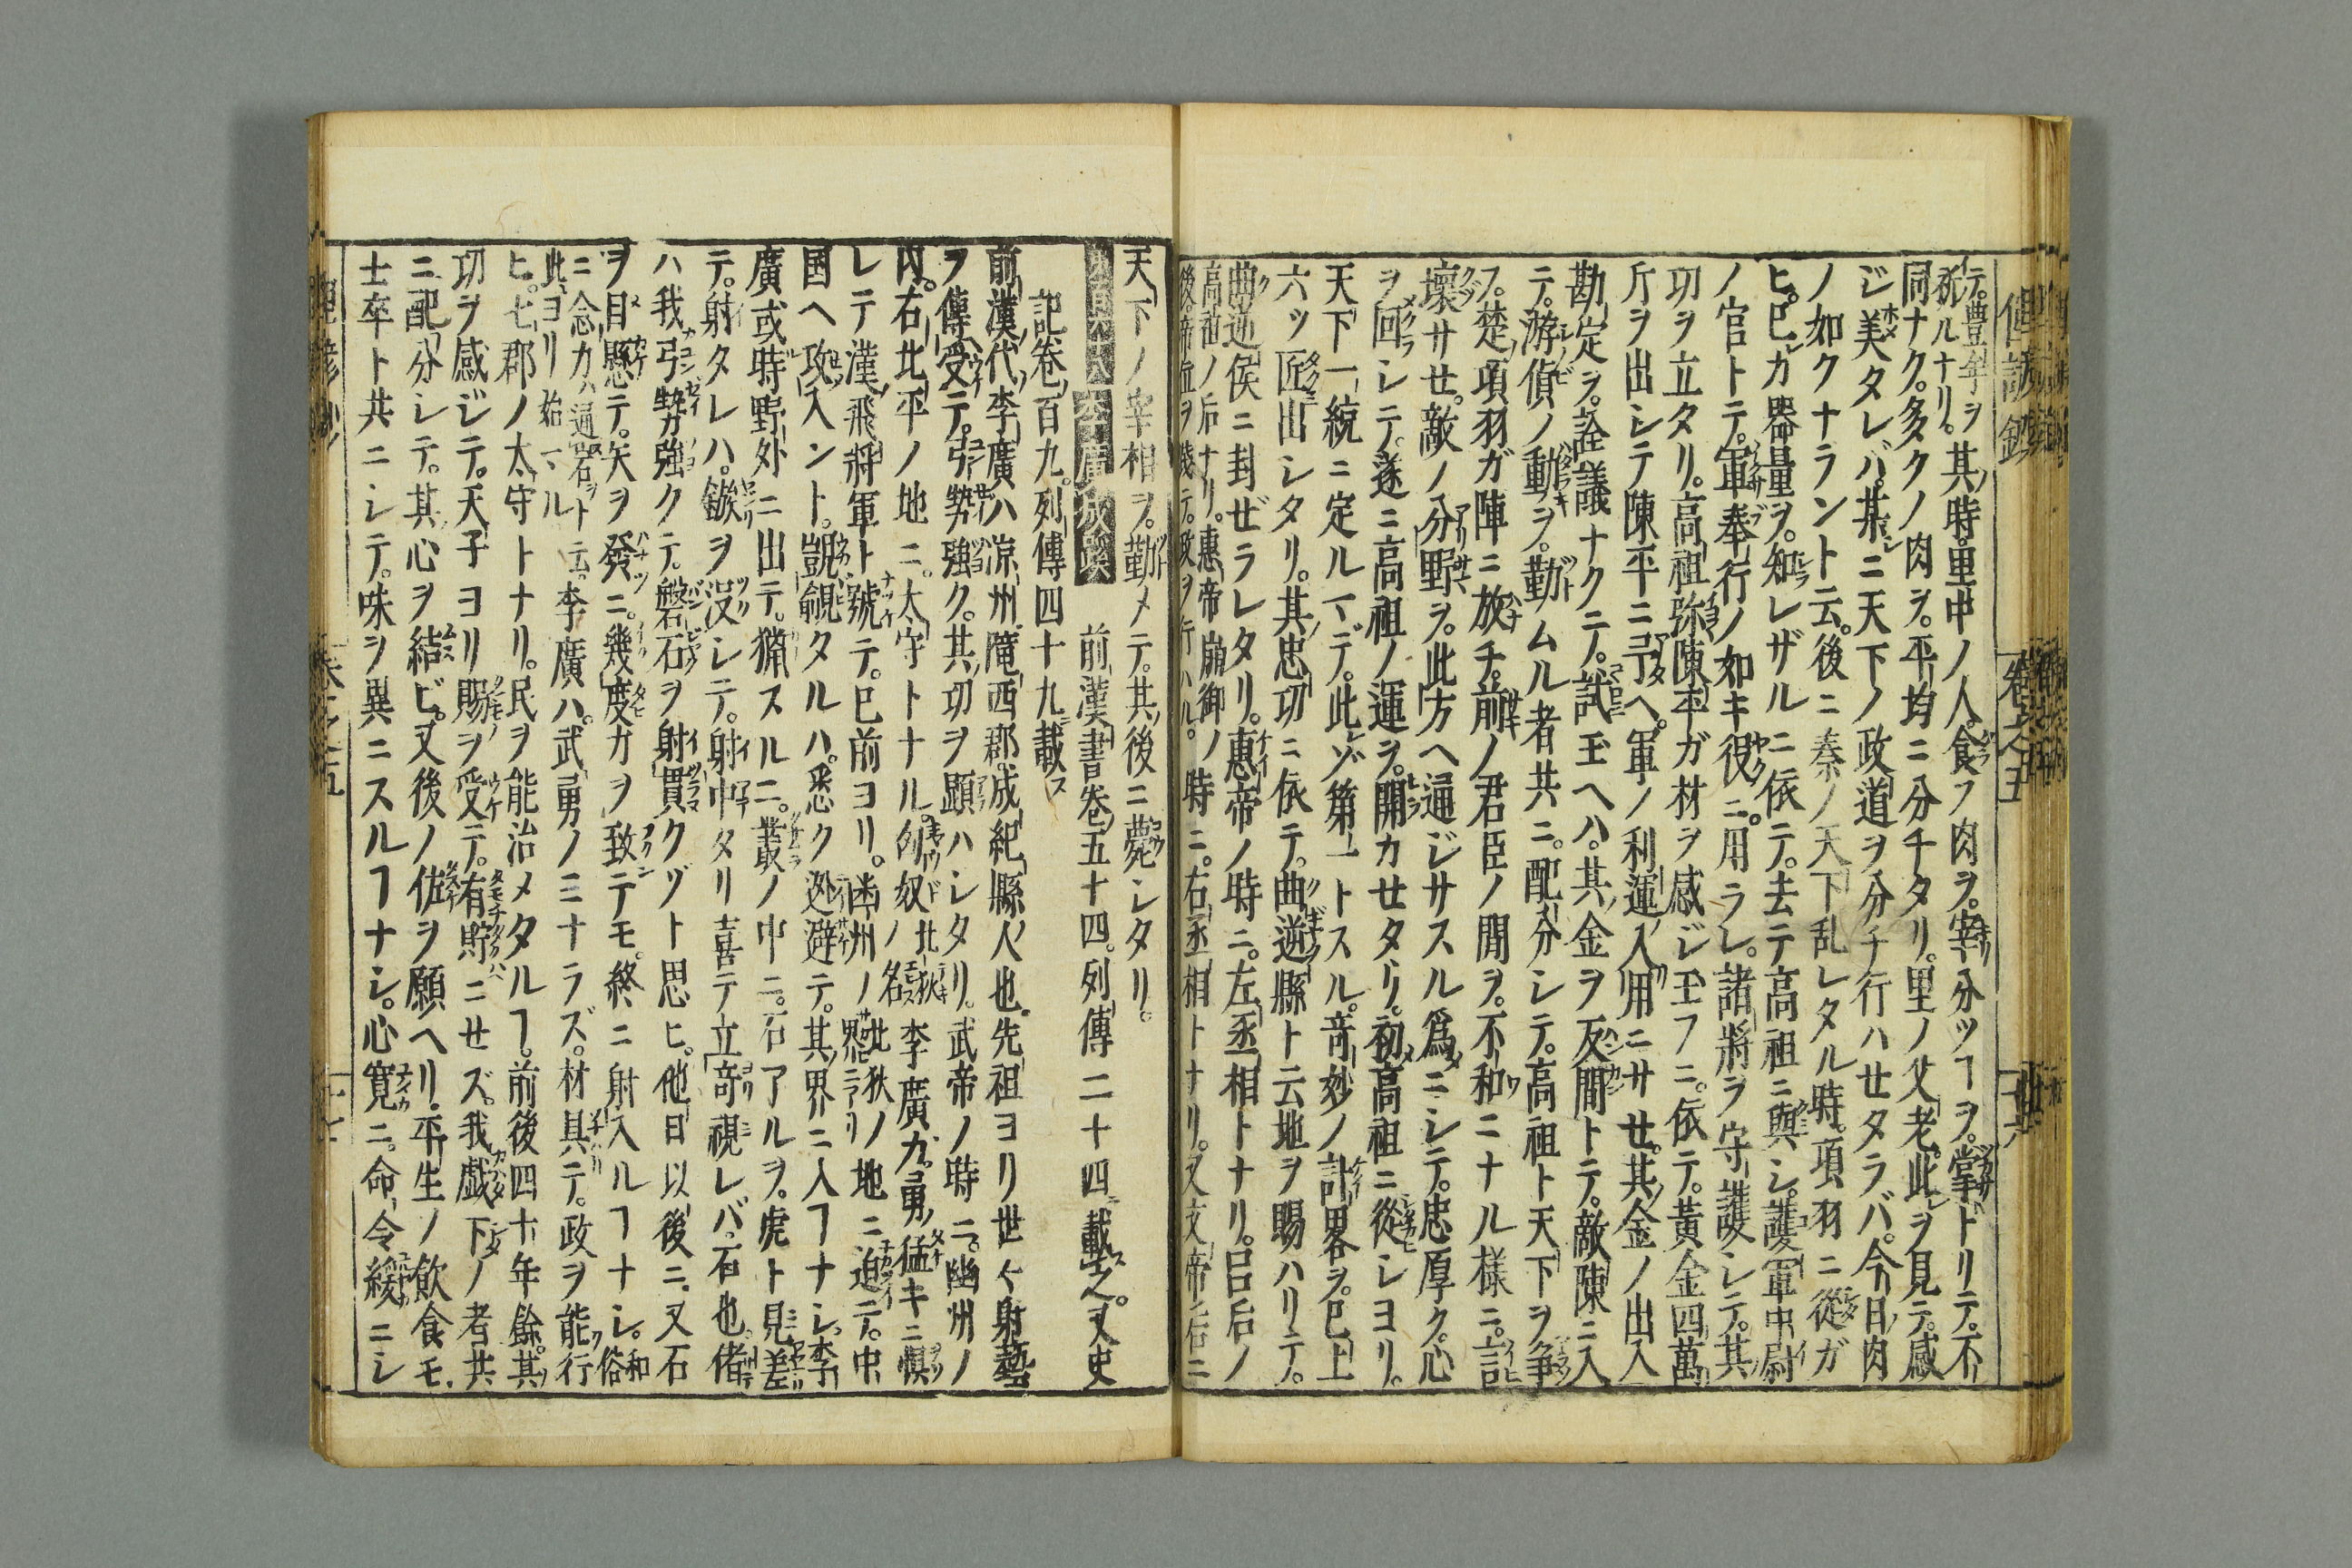 テ。豊年ヲ。其時。里中ノ人。食フ肉ヲ。宰分ツヿヲ。掌トリテ。不
祈ルナリ。
同ナク。多クノ肉ヲ。平均ニ分チタリ。里ノ父老。此ヲ見テ。感
ジ美タレバ。某ニ天下ノ政道ヲ分チ行ハセタラバ。今日肉
ノ如クナラント云。後ニ秦ノ天下乱レタル時。項羽ニ從ガ
ヒ。已カ器量ヲ。知レザルニ依テ。去テ高祖ニ與シ。護軍中尉
ノ官トテ。軍奉行ノ如キ役ニ。用ラレ。諸將ヲ守護シテ。其
功ヲ立タリ。高祖弥陳平ガ材ヲ感ジ玉フニ。依テ。黃金四萬
斤ヲ出シテ陳平ニ与ヘ。軍ノ利運入用ニサせ。其金ノ出入
勘定ヲ。詮議ナクニテ。試玉ヘハ。其金ヲ反間トテ。敵陳ニ入
テ。游偵ノ動ヲ。勤ムル者共ニ。配分シテ。高祖ト天下ヲ争
フ。楚項羽ガ陣ニ放チ。前ノ君臣ノ間ヲ。不和ニナル様ニ。言
壞サせ。敵ノ分野ヲ。此方ヘ通ジサスル爲ニシテ。忠厚ク。心
ヲ回シテ。遂ニ高祖ノ運ヲ。開カせタリ。初高祖ニ從シヨリ。
天下一統ニ定ルマデ。此ゾ第一トスル。奇妙ノ計畧ヲ。已上
六ツ匠出シタリ。其忠切ニ依テ。曲逆縣ト云地ヲ賜ハリテ。
曲逆侯ニ封ぜラレタリ。惠帝ノ時ニ。左丞相トナリ。呂后ノ
高祖ノ后ナリ。惠帝崩御ノ
後。帝位ヲ殘テ。政ヲ行ハル。時ニ。右丞相トナリ。又文帝后ニ
卷之五
天下ノ宰相ヲ。勤メテ。其後ニ薨シタリ。
李廣成蹊 前漢書卷五十四。列傳二十四載之。又史
記卷百九。列傳四十九載ス
前漢代。李廣ハ涼州。隴西郡。成紀縣人也。先祖ヨリ世々射藝
ヲ傳受テ。弓勢強ク。其功ヲ顕ハシタリ。武帝ノ時ニ。幽州ノ
內。右北平ノ地ニ。太守トナル。匈奴ノ 北狄名 李廣カ。勇猛キニ惧
レテ漢飛將軍ト號テ。已前ヨリ。幽州ノ 界ニアリ 北狄ノ地ニ迫テ。中
国ヘ攻入ント。覬覦タルハ。悉ク逊避テ。其界ニ入ヿナシ。李
廣或時野外ニ出テ。猟スルニ。叢ノ中ニ。石アルヲ。虎ト見差
テ。射タレハ。鏃ヲ沒シテ。射中タリ喜テ立寄視レバ。石也。偖
ハ我弓勢強クテ。磐石ヲ射貫クゾト思ヒ。他日以後ニ。又石
ヲ目懸テ。矢ヲ發ニ。幾度カヲ致テモ。終ニ射入ルヿナシ。和俗
ニ念力ハ通岩ヲト云。
此ヨリ始マル 李廣ハ。武勇ノミナラズ。材具テ。政ヲ能行
ヒ。七郡ノ太守トナリ。民ヲ能治メタルヿ。前後四十年餘。其
功ヲ感ジテ。天子ヨリ賜ヲ受テ。有貯ニせズ。我戯下ノ者共
ニ配分シテ。其心ヲ結ビ。又後ノ佐ヲ願ヘリ。平生ノ飲食モ。
士卒ト共ニシテ。味ヲ異ニスルヿナシ。心寛ニ。命令緩ニシ